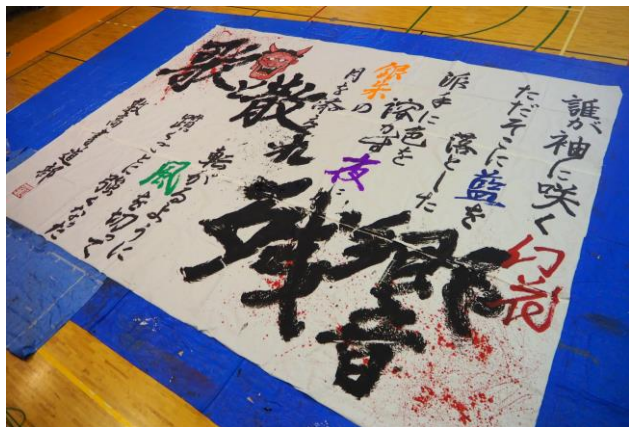 誰が袖に咲く幻花
ただそこに藍を
落とした
派手に色を
溶かす夜に
銀朱の
月を添えて
響
歌と散れ
転がるように
風を切って
躓くごとに強くなった
書道部